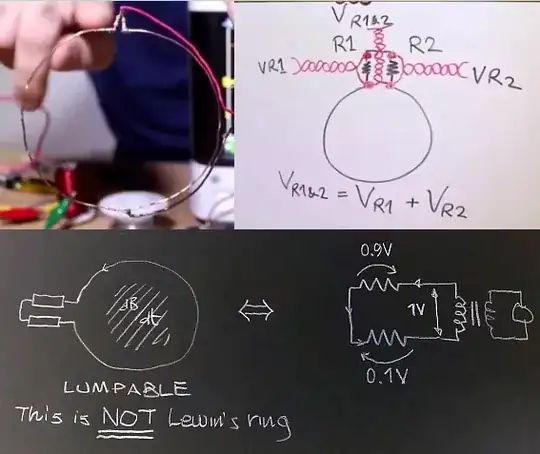 VR1&2
R1 R2
VR1 VR2
VR1&2 = VR1 + VR2
0.9V
dB
dt
1V
0.1V
LUMPABLE
This is NOT Lewin's ring